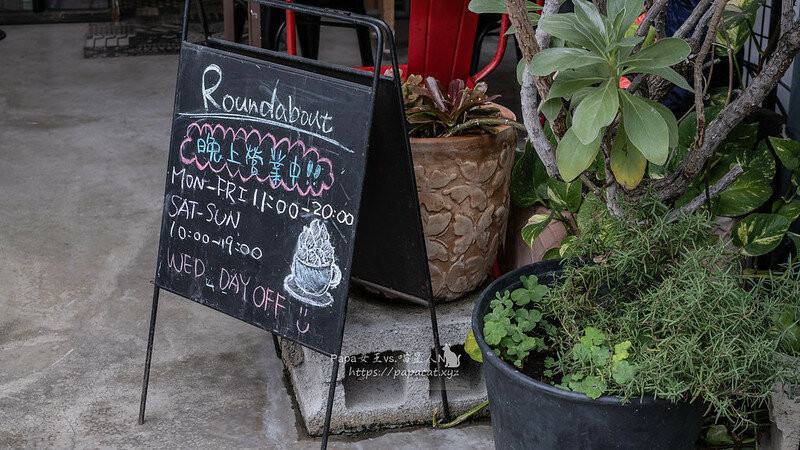 Roundabout
晚上營業中!!
MON-FRI 11:00-20:00
SAT-SUN
10:00-19:00
WED. DAY OFF
Papa女王vs.喵星人N
https://papacat.xyz